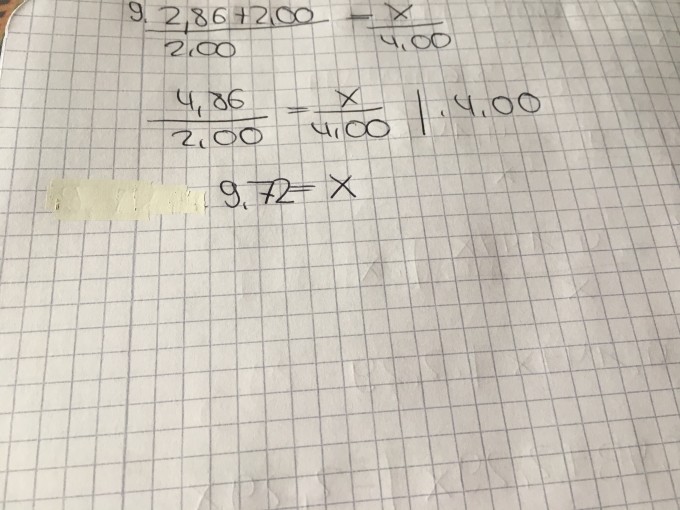 9. 2,86+2.00 = x
2.00 4.00
4,86 = x | . 4.00
2.00 4.00
9.72= x